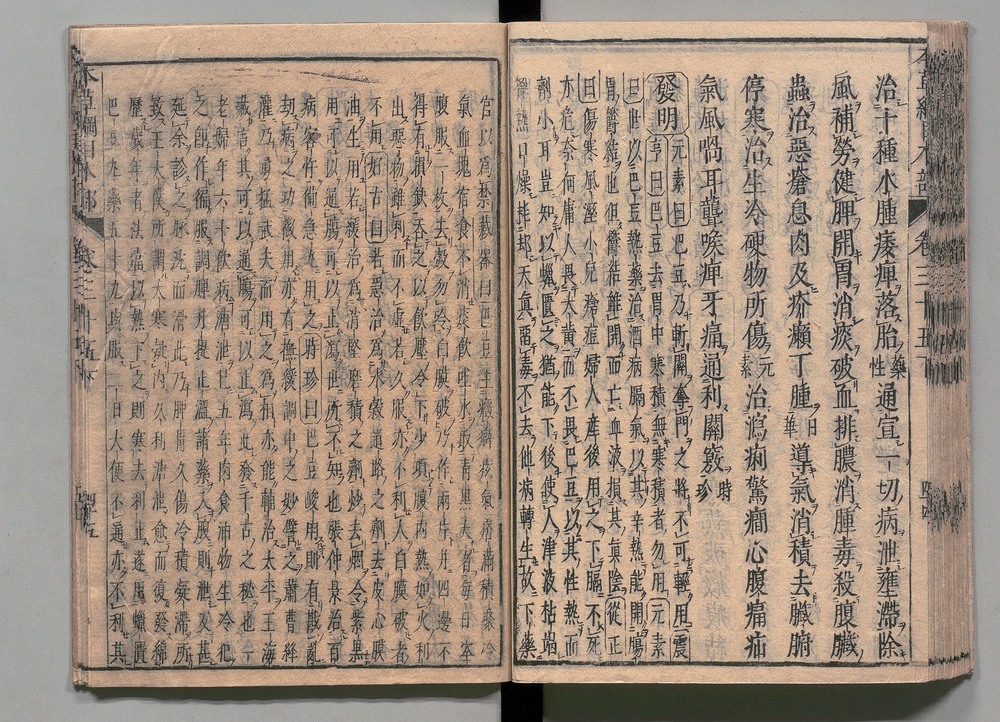 治十種水腫痿痺落胎藥性通宣一切病泄壅滯除
風補勞健脾開胃消痰破血排膿消腫毒殺腹臟
蟲治惡瘡息肉及疥癩丁腫日華導氣消積去臟腑
停寒治生冷硬物所傷元素治瀉痢驚癇心腹痛疝
氣風喎耳聾喉痺牙痛通利關竅時珍
發明元素曰巴豆乃斬關奪門之將不可輕用震
亨曰巴豆去胃中寒積無寒積者勿用元素
曰世以巴豆熱藥治酒病膈氣以其辛熱能開腸
胃鬱結也但鬱結雖開而亡血液損其眞陰從正
曰傷寒風溼小兒瘡痘婦人産後用之下膈不死
亦危奈何庸人畏大黃而不畏巴豆以其性熱而
劑小耳豈知以蠟匱之猶能下後使人津液枯竭
胸熱口燥耗却天眞留毒不去他病轉生故下藥
宜以爲禁藏器曰巴豆主癥癖痃氣痞滿積聚冷
氣血塊宿食不消痰飲吐水取靑黑大者每日空
腹服一枚去殼勿令白膜破乃作兩片并四邊不
得有損缺吞之以飲壓令下少頃腹内熱如火利
出惡物雖利而不虛若久服亦不利人白膜破者
不用好古曰若急治爲水穀道路之劑去皮心膜
油生用若緩治爲消堅磨積之劑炒去烟令紫黑
用可以通腸可以止瀉世所不知也張仲景治百
病客忤備急丸用之時珍曰巴豆峻用則有戡亂
劫病之功微用亦有撫緩調中之妙譬之蕭曹絳
灌乃勇猛武夫而用之爲相亦能輔治太平王海
藏言其可以通腸可以止瀉此發千古之秘也一
老婦年六十餘病溏泄已五年肉食油物生冷犯
之卽作痛服調脾升提止濇諸藥入腹則泄反甚
延余診之脉沉而滑此乃脾胃久傷冷積凝滯所
致王太僕所謂大寒凝内久利溏泄愈而復發綿
歷歲年者法當以熱下之則寒去利止遂用蠟匱
巴豆丸藥五十丸與服二日大便不通亦不利其